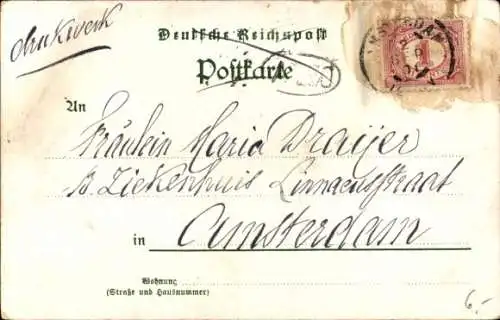 drukwerk
Deutsche Reichspost
Postkarte
AMSTERDAM
1
An
Fräulein Maria Draijer
B. Ziekenhuis Linnaeusstraat
in Amsterdam
Wohnung
(Straße und Hausnummer)
6.-